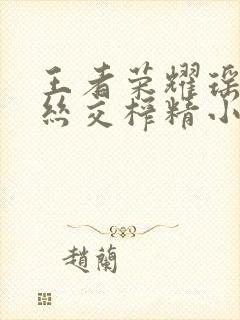 王者荣耀瑶
丝交榨精小
趙蘭